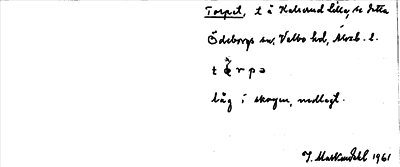 Torpet, t å Kalserud Lilla, se detta
Ödeborgs sn, Valbo hd, Älvsb. l.
t rpə
låg i skogen, nedlagt.
1961